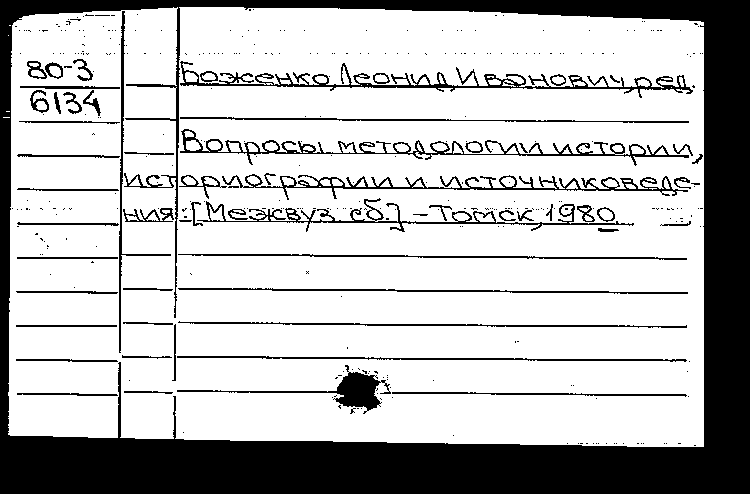 80-3
6134
Боженко, Леонид Иванович, ред.
Вопросы методологии истории,
историографии и источниковеде-
ния: [Межвуз. сб.] – Томск, 1980.